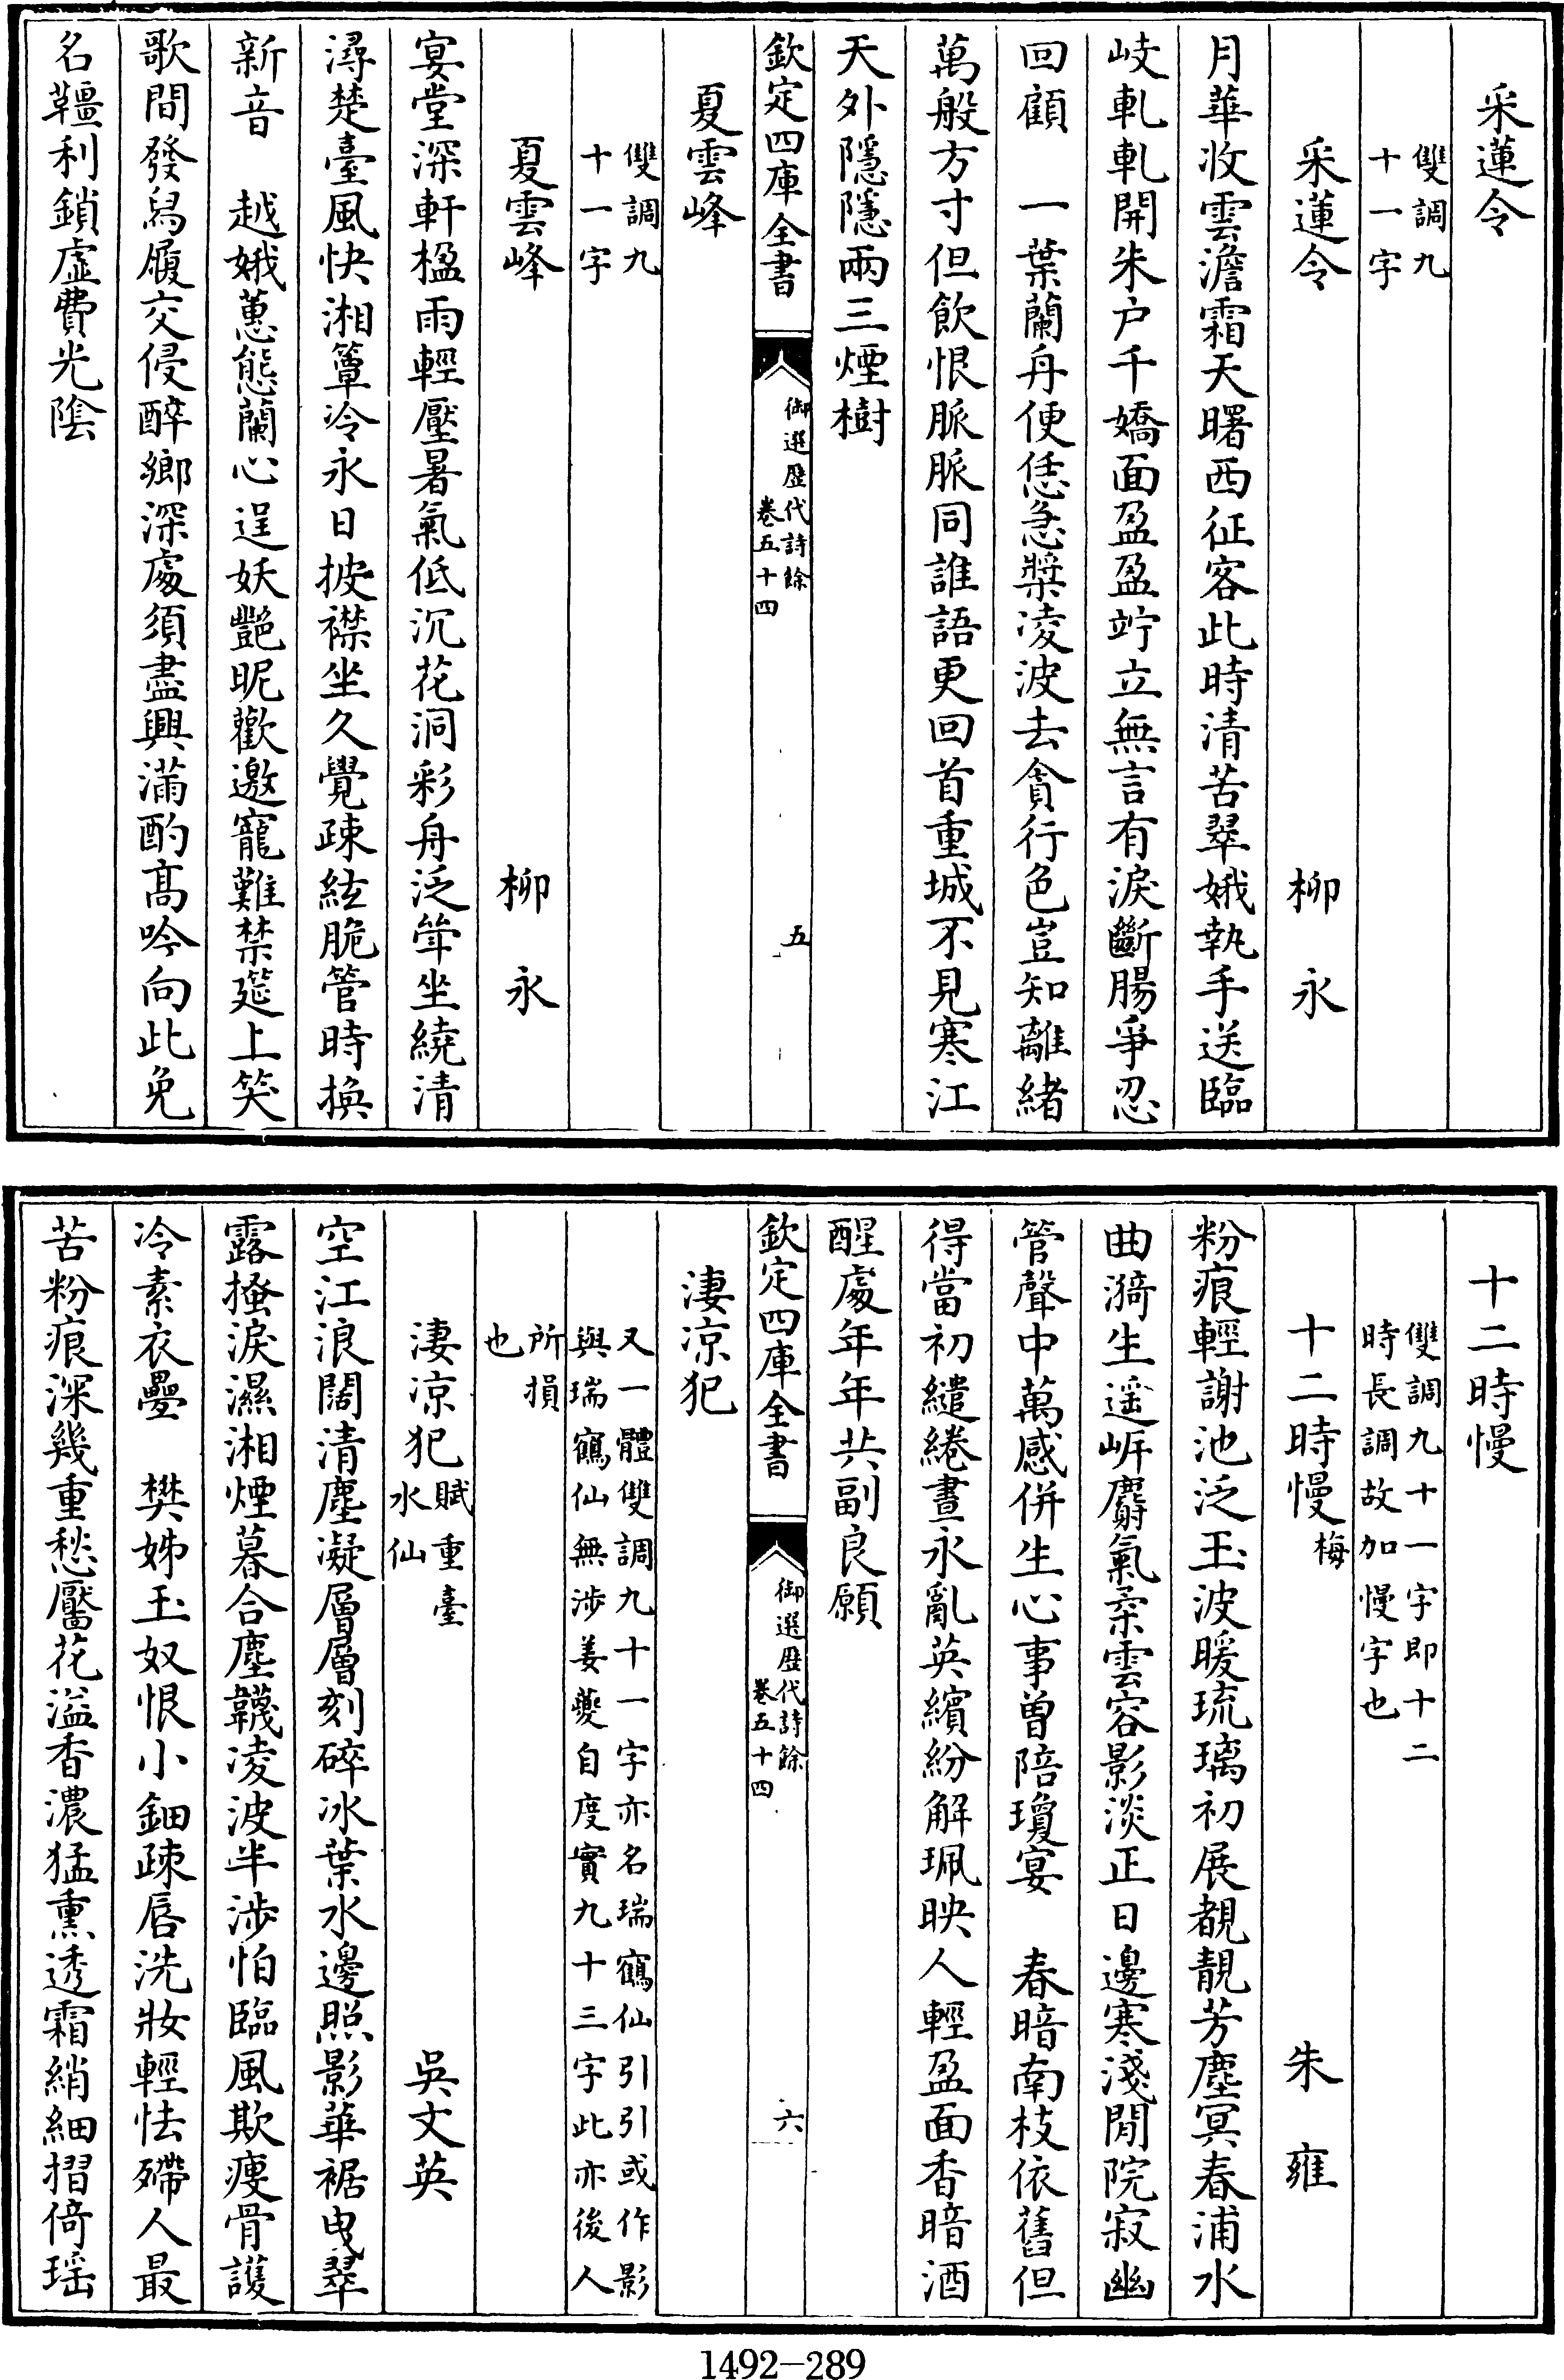 采蓮令
雙調九
十一字
采蓮令 柳永
月華收雲澹霜天曙西征客此時清苦翠娥執手送臨
岐軋軋開朱户千嬌面盈盈竚立無言有淚斷腸爭忍
回顧 一葉蘭舟便恁急槳凌波去貪行色豈知離緒
萬般方寸但飲恨脈脈同誰語更回首重城不見寒江
天外隱隱兩三煙樹
欽定四庫全書
御選歷代詩餘
卷五十四
五
夏雲峰
雙調九
十一字
夏雲峰 柳永
宴堂深軒楹雨輕壓暑氣低沉花洞彩舟泛斝坐繞清
潯楚臺風快湘簟冷永日披襟坐久覺疎絃脆管時換
新音 越娥蕙態蘭心逞妖艷昵歡邀寵難禁筵上笑
歌間發舄履交侵醉鄉深處須盡興滿酌高吟向此免
名韁利鎖虛費光陰
十二時慢
雙調九十一字即十二
時長調故加慢字也
十二時慢梅 朱雍
粉痕輕謝池泛玉波暖琉璃初展覩靚芳塵冥春浦水
曲漪生遥岍麝氣柔雲容影淡正日邊寒淺閒院寂幽
管聲中萬感併生心事曽陪瓊宴 春暗南枝依舊但
得當初繾綣晝永亂英繽紛解珮映人輕盈面香暗酒
醒處年年共副良願
欽定四庫全書
御選歷代詩餘
卷五十四
六
淒凉犯
又一體雙調九十一字亦名瑞鶴仙引引或作影
與瑞鶴仙無涉姜夔自度實九十三字此亦後人
所損
也
淒凉犯賦重臺
水仙 吳文英
空江浪闊清塵凝層層刻碎冰葉水邊照影華裾曳翠
露搔淚濕湘煙暮合塵韈凌波半涉怕臨風欺瘦骨護
冷素衣疊 樊姊玉奴恨小鈿疎唇洗妝輕怯殢人最
苦粉痕深幾重愁靨花溢香濃猛熏透霜綃細摺倚瑶
1492-289